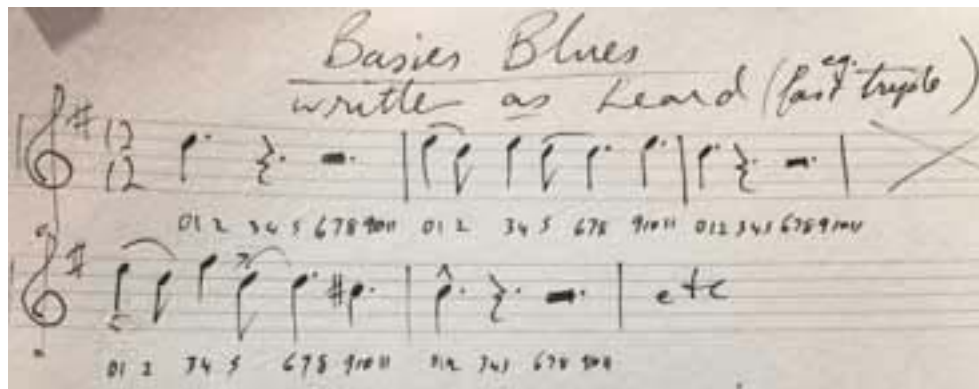 Basies Blues
written as heard (eg. fast triple)
12
12
01 2 34 5 678 91011 01 2 34 5 678 91011 012 345 678 91011
etc
01 2 34 5 678 91011 012 345 678 91011